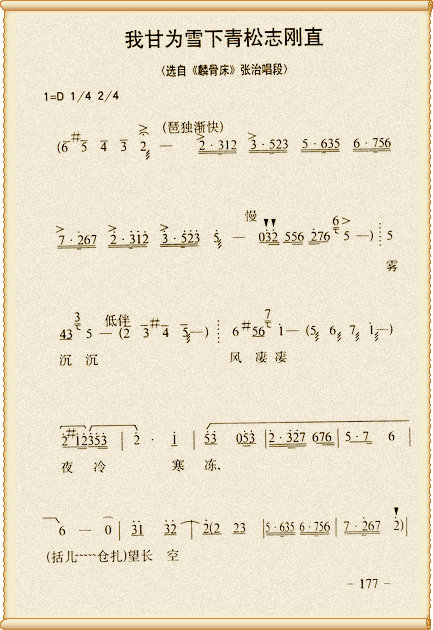 我甘为雪下青松志刚直
(选自《麟骨床》张治唱段)
1=D 1/4 2/4
(琵独渐快)
(6 #5 4 3 2 — 2·312 3·523 5·635 6·756
慢
7·267 2·312 3·523 5 — 032 556 276 5 —) 5
雾
低伴
43 5 — (2 3 #4 5 —) 6 #56 1 — (5 6 7 1 —)
沉 沉 风 凄 凄
2 #12353 | 2 · 1 | 53 053 | 2·327 676 | 5·7 6 |
夜 冷 寒 冻,
6 — 0 | 31 32 | 2(2 23 | 5·635 6·756 | 7·267 2) |
(括儿----仓扎)望长 空
- 177 -